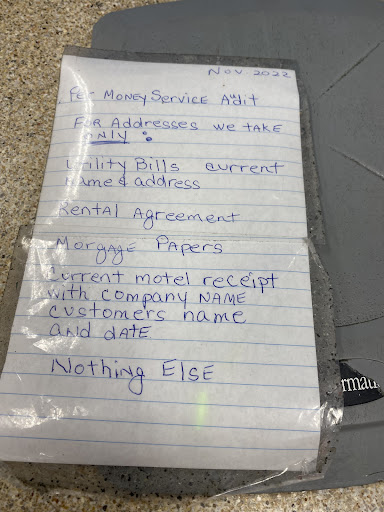 Nov. 2022
Per Money Service Audit
For Addresses we take
only :
Utility Bills current
name & address
Rental Agreement
Morgage Papers
Current motel receipt
with company name
customers name
and date
Nothing Else